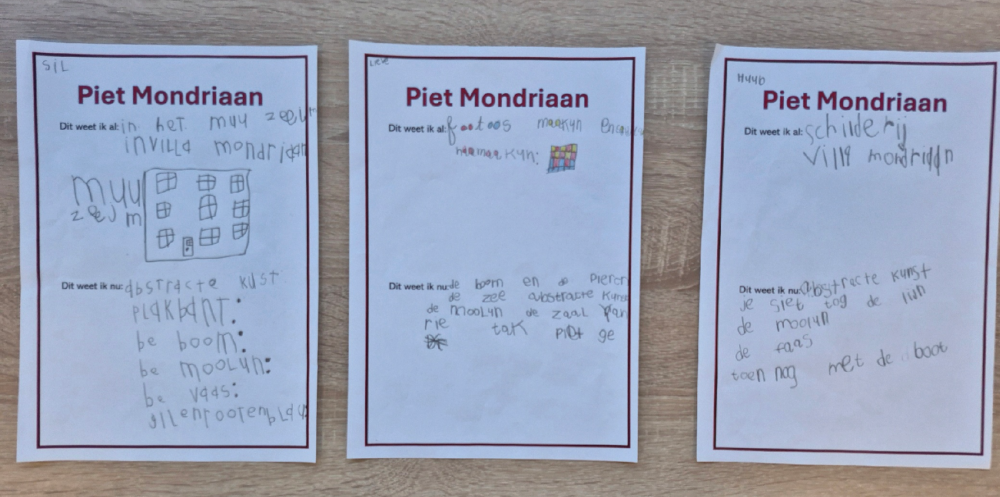 SIL
Piet Mondriaan
Dit weet ik al: in het muu zeeum
in villa mondriaan
muu
zeeum
Dit weet ik nu: abstracte kust
plakbant:
be boom:
be moolun:
be vaas:
Piet Mondriaan
Dit weet ik al: footoos maakun
naamaakun:
Dit weet ik nu: de boom en de pier
de zee abstracte kuns
de moolun de zaal van
rie tak piet ge
HUUb
Piet Mondriaan
Dit weet ik al: schilderij
villa mondriaan
Dit weet ik nu: abstracte kunst
je siet tog de lun
de moolun
de faas
toen nog met de boot